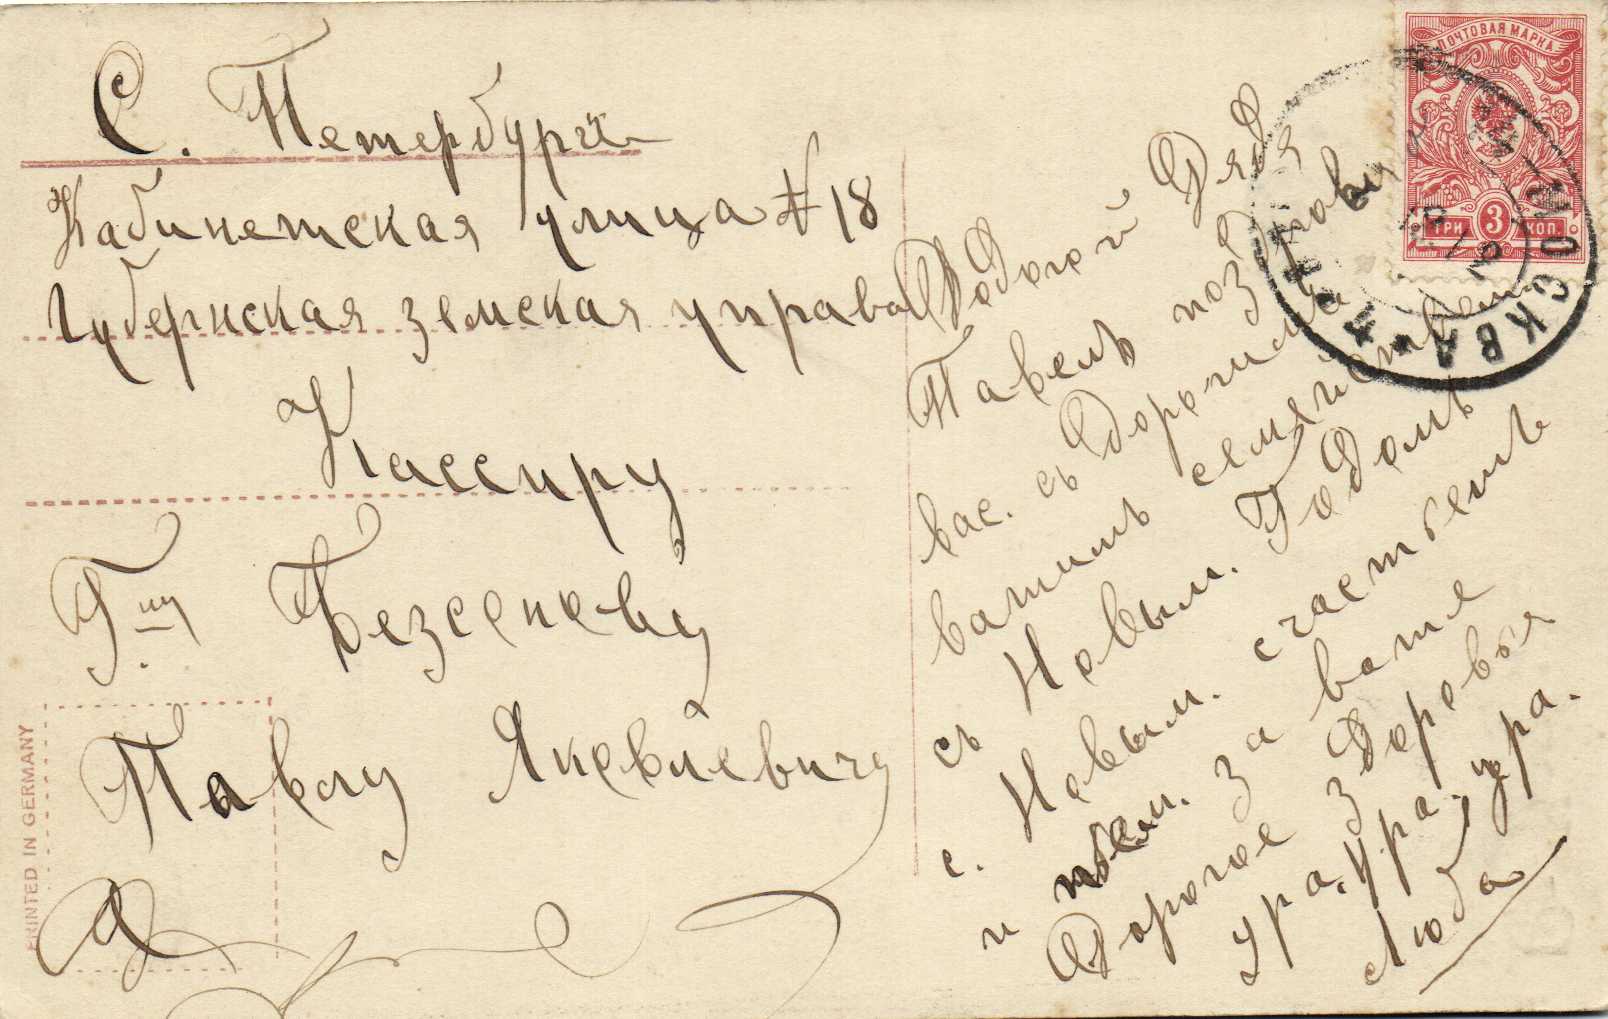 С. Петербургъ
Кабинетская улица № 18
Губернская земская управа
Кассиру
Г-ну Безсонову
Павлу Яковлевичу
PRINTED IN GERMANY
Дорогой Дядя
Павелъ поздравляю
вас. съ дорогимъ
вашимъ семействомъ
съ Новым. Годомъ
с. Новым. счастьемъ
и пьем. за ваше
Дорогое здоровья
ура. ура. ура.
Люба
ПОЧТОВАЯ МАРКА
ТРИ 3 КОП.
МОСКВА